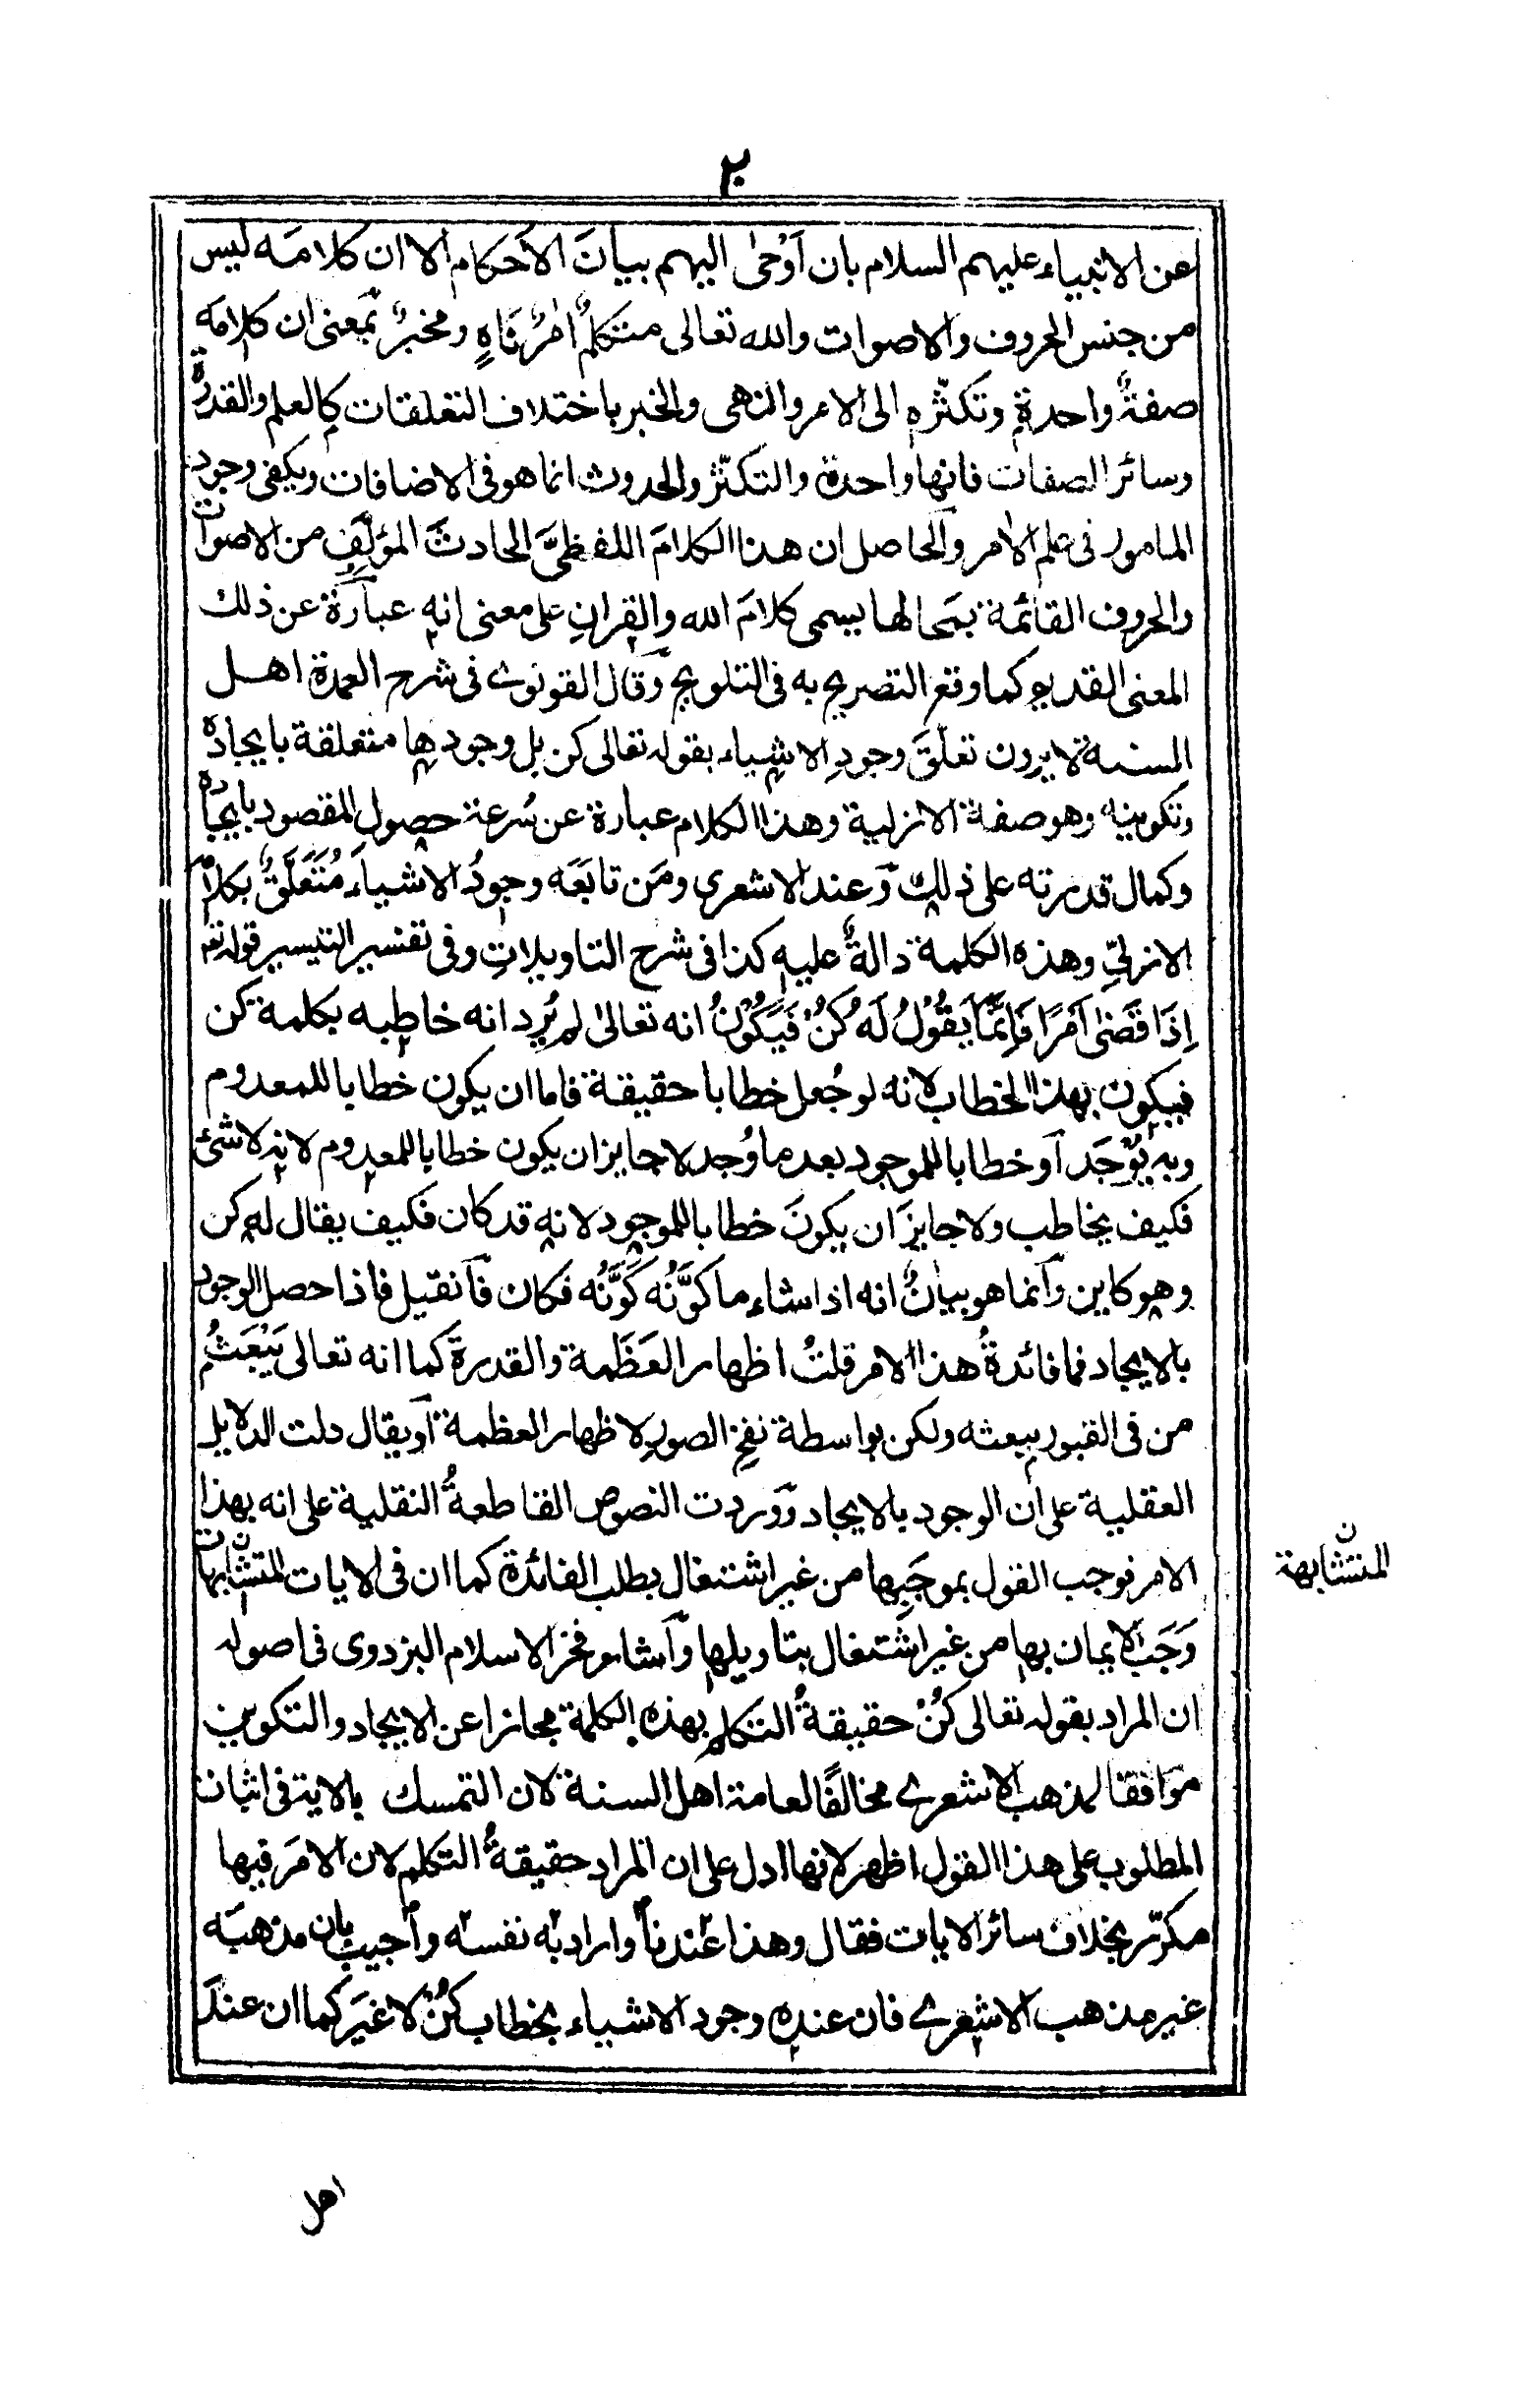 ٢٠
عن الانبياء عليهم السلام بان اَوْحىٰ اليهم بيانَ الاَحكام الا ان كلامَه ليس
من جنس الحروف والاصوات والله تعالى متكلمٌ اٰمرٌ نَاهٍ ومخبرٌ بمعنى ان كلامَه
صفةٌ واحدةٌ وتكثّره الى الامر والنهى والخبر باختلاف التعلقات كالعلم والقدرة
وسائر الصفات فانها واحدة والتكثّر والحدوث انما هو فى الاضافات ويكفى وجود
المامور فى علم الاٰمر والحاصل ان هذا الكلامَ اللفظىَّ الحادثَ المؤلَّفِ من الاصوات
والحروف القائمة بمَحالها يسمى كلامَ الله والقرانِ على معنى انه عبارة عن ذلك
المعنى القديم كما وقع التصريح به فى التلويح وقال القونوى فى شرح العمدة اهل
السنة لا يرون تعلّقَ وجودِ الاشياء بقوله تعالى كن بل وجودها متعلقة بايجاده
وتكوينه وهو صفة الازلية وهذا الكلام عبارة عن سُرعة حصول المقصود بايجاده
وكمال قدرته على ذلك وعند الاشعرى ومَن تابَعَه وجودُ الاشياءِ مُتَعَلَّقٌ بكلامٍه
الازلىّ وهذه الكلمة دالةٌ عليه كذا فى شرح التاويلات وفى تفسير التيسير قوله تعه
اِذَا قَضٰى اَمْرًا فَاِنَّمَا يَقُوْلُ لَهٗ كُنْ فَيَكُوْنُ انه تعالىٰ لم يُرِد انه خاطبه بكلمة كن
فيكون بهذا الخطاب لانه لو جُعل خطابا حقيقة فاما ان يكون خطابا للمعدوم
وبه يُوْجَد اَو خطابا للموجود بعد ما وُجد لا جايز ان يكون خطابا للمعدوم لانه لا شئ
فكيف يخاطب ولا جايزَ ان يكونَ خطابا للموجود لانه قد كان فكيف يقال له كن
وهو كاين وانما هو بيانٌ انه اذا شاء ما كَوَّنُه كَوَّنُه فكان فان قيل فاذا حصل الوجود
بالايجاد فما فائدةُ هذا الامر قلتُ اظهار العَظَمة والقدرة كما انه تعالى يَبْعَثُ
من فى القبور ببعثه ولكن بواسطة نفخ الصورِ لاظهار العظمة او يقال دلت الدلايل
العقلية على ان الوجود بالايجاد ووردت النصوص القاطعةُ النقلية على انه بهذا
الامر فوجب القول بموجَبِها من غير اشتغال بطلب الفائدة كما ان فى الايات المتشابهات
المتشابهة ن
وَجَبَ الايمان بها من غير اشتغال بتاويلها وَاشار فخر الاسلام البزدوى فى اصوله
ان المراد بقوله تعالى كُنْ حقيقةُ التكلم بهذه الكلمة مجازا عن الايجاد والتكوين
موافقا لمذهب الاشعرى مخالفًا لعامة اهل السنة لان التمسك بالاية فى اثبات
المطلوب على هذا القول اظهر لانها ادل على ان المراد حقيقةُ التكلم لان الامَر فيها
مكرّر بخلاف سائر الايات فقال وهذا عندنا واراد به نفسه واجيب بان مذهبَه
غير مذهب الاشعرى فان عنده وجود الاشياء بخطاب كُنْ لا غيرَ كما ان عندَ
اهل